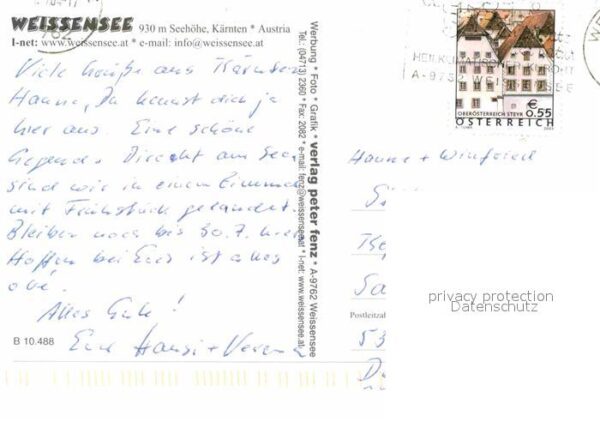 WEISSENSEE 930 m Seehöhe, Kärnten * Austria
I-net: www.weissensee.at * e-mail: info@weissensee.at
Viele Grüße aus Kärnten
Hanne, Du kennst dich ja
hier aus. Eine schöne
Gegend. Direkt am See
sind wir in einem Zimmer
mit Frühstück gelandet.
Bleiben noch bis 30.7. hier
Hoffen bei Euch ist alles
oké.
Alles Gute!
Eure Hansi + Verena
B 10.488
Werbung * Foto * Grafik * verlag peter fenz * A-9762 Weissensee
Tel.: (04713) 2360 * Fax: 2082 * e-mail: fenz@weissensee.at * I-net: www.weissensee.at
HEILKLIMATISCHER KURORT
A-9762 WEISSENSEE
€
0.55
OBERÖSTERREICH STEYR
ÖSTERREICH
Hanne + Winfried
privacy protection
Datenschutz
Postleitzahl
53